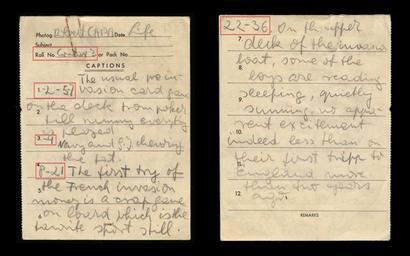 Photog Robert CAPA Date Life
Subject
Roll No. or Pack No.
CAPTIONS
The usual pre in-
1. 2-57 vasion card game
on the deck from poker
2. till rummy everything
is played
3. Navy and G.I. chewing
the fat.
4. 8-21 The first try of
5. the French invasion
money is a crap game
6. on board which is the
favorite sport still.
22-36. On the upper
7. deck of the invasion
boat, some of the
8. boys are reading
sleeping, quietly
9. sunning, no appa-
rent excitement
10. indeed less than on
11. their first tripp to
England more
12. than two years
ago.
REMARKS